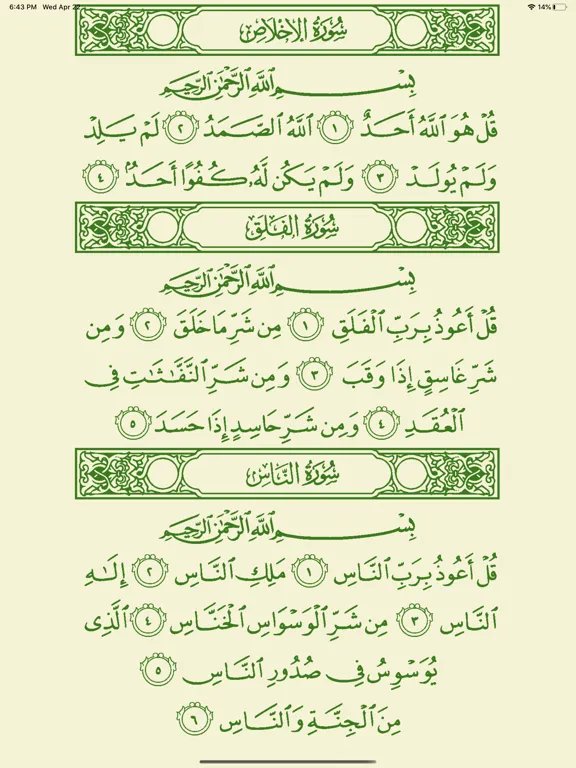 6:43 PM Wed Apr 14%
سُورَةُ الإِخْلَاصِ
بِسْمِ ٱللَّهِ ٱلرَّحْمَٰنِ ٱلرَّحِيمِ
قُلْ هُوَ ٱللَّهُ أَحَدٌ ١ ٱللَّهُ ٱلصَّمَدُ ٢ لَمْ يَلِدْ
وَلَمْ يُولَدْ ٣ وَلَمْ يَكُن لَّهُۥ كُفُوًا أَحَدٌۢ ٤
سُورَةُ الفَلَقِ
بِسْمِ ٱللَّهِ ٱلرَّحْمَٰنِ ٱلرَّحِيمِ
قُلْ أَعُوذُ بِرَبِّ ٱلْفَلَقِ ١ مِن شَرِّ مَا خَلَقَ ٢ وَمِن
شَرِّ غَاسِقٍ إِذَا وَقَبَ ٣ وَمِن شَرِّ ٱلنَّفَّٰثَٰتِ فِى
ٱلْعُقَدِ ٤ وَمِن شَرِّ حَاسِدٍ إِذَا حَسَدَ ٥
سُورَةُ النَّاسِ
بِسْمِ ٱللَّهِ ٱلرَّحْمَٰنِ ٱلرَّحِيمِ
قُلْ أَعُوذُ بِرَبِّ ٱلنَّاسِ ١ مَلِكِ ٱلنَّاسِ ٢ إِلَٰهِ
ٱلنَّاسِ ٣ مِن شَرِّ ٱلْوَسْوَاسِ ٱلْخَنَّاسِ ٤ ٱلَّذِى
يُوَسْوِسُ فِى صُدُورِ ٱلنَّاسِ ٥
مِنَ ٱلْجِنَّةِ وَٱلنَّاسِ ٦